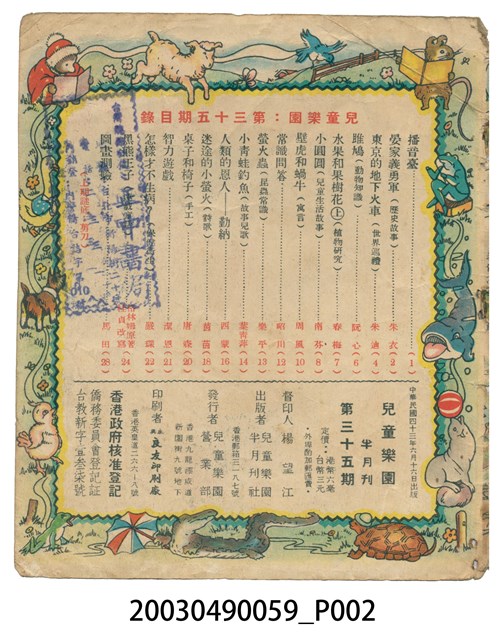 兒童樂園：第三十五期目錄
播音臺 (1)
晏家義勇軍（歷史故事） 朱衣(2)
東京的地下火車（世界巡禮） 朱迪(4)
雎鳩（動物知識） 阮心(6)
水果和果樹花(上)（植物研究） 春梅(7)
小圓圓（兒童生活故事） 南芬(8)
壁虎和蝸牛（寓言） 周風(10)
常識問答 昭川(12)
螢火蟲（昆蟲常識） 樂平(13)
小青蛙釣魚（故事兒歌） 葉青萍(14)
人類的恩人——勤納 西蒙(16)
迷途的小螢火（詩歌） 薔薇(18)
桌子和椅子（手工） 唐森(20)
智力遊戲 潔恩(21)
怎樣才不生病 (22)
黑熊王子 (24)
圖畫測驗 馬田(28)
中華民國四十三年六月十六日出版
兒童樂園 半月刊
第三十五期
定價：港幣六毫 台幣三元
外埠酌加郵運費
督印人 楊望江
出版者 兒童樂園半月刊社
香港郵箱三一八七號
發行者 兒童樂園營業部
香港九龍漆咸道
新圍街九號地下
印刷者 良友印刷廠
香港英皇道二六六—八號
香港政府核准登記
僑務委員會登記証
台教新字第叁柒號
20030490059_P002